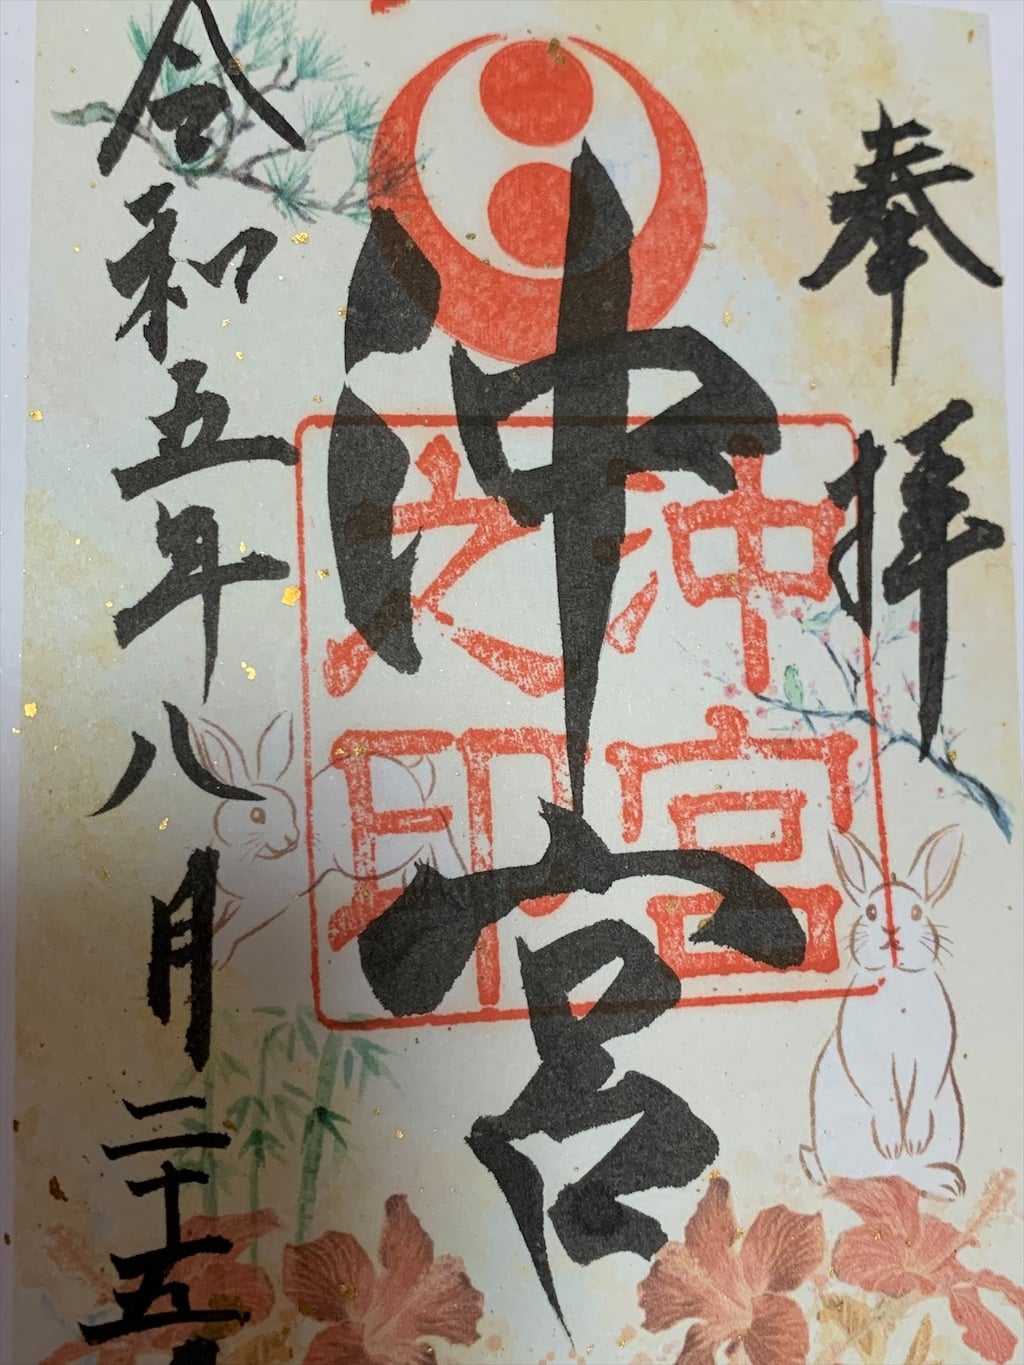 奉拝
沖宮
沖宮
之印
令和五年八月二十五日